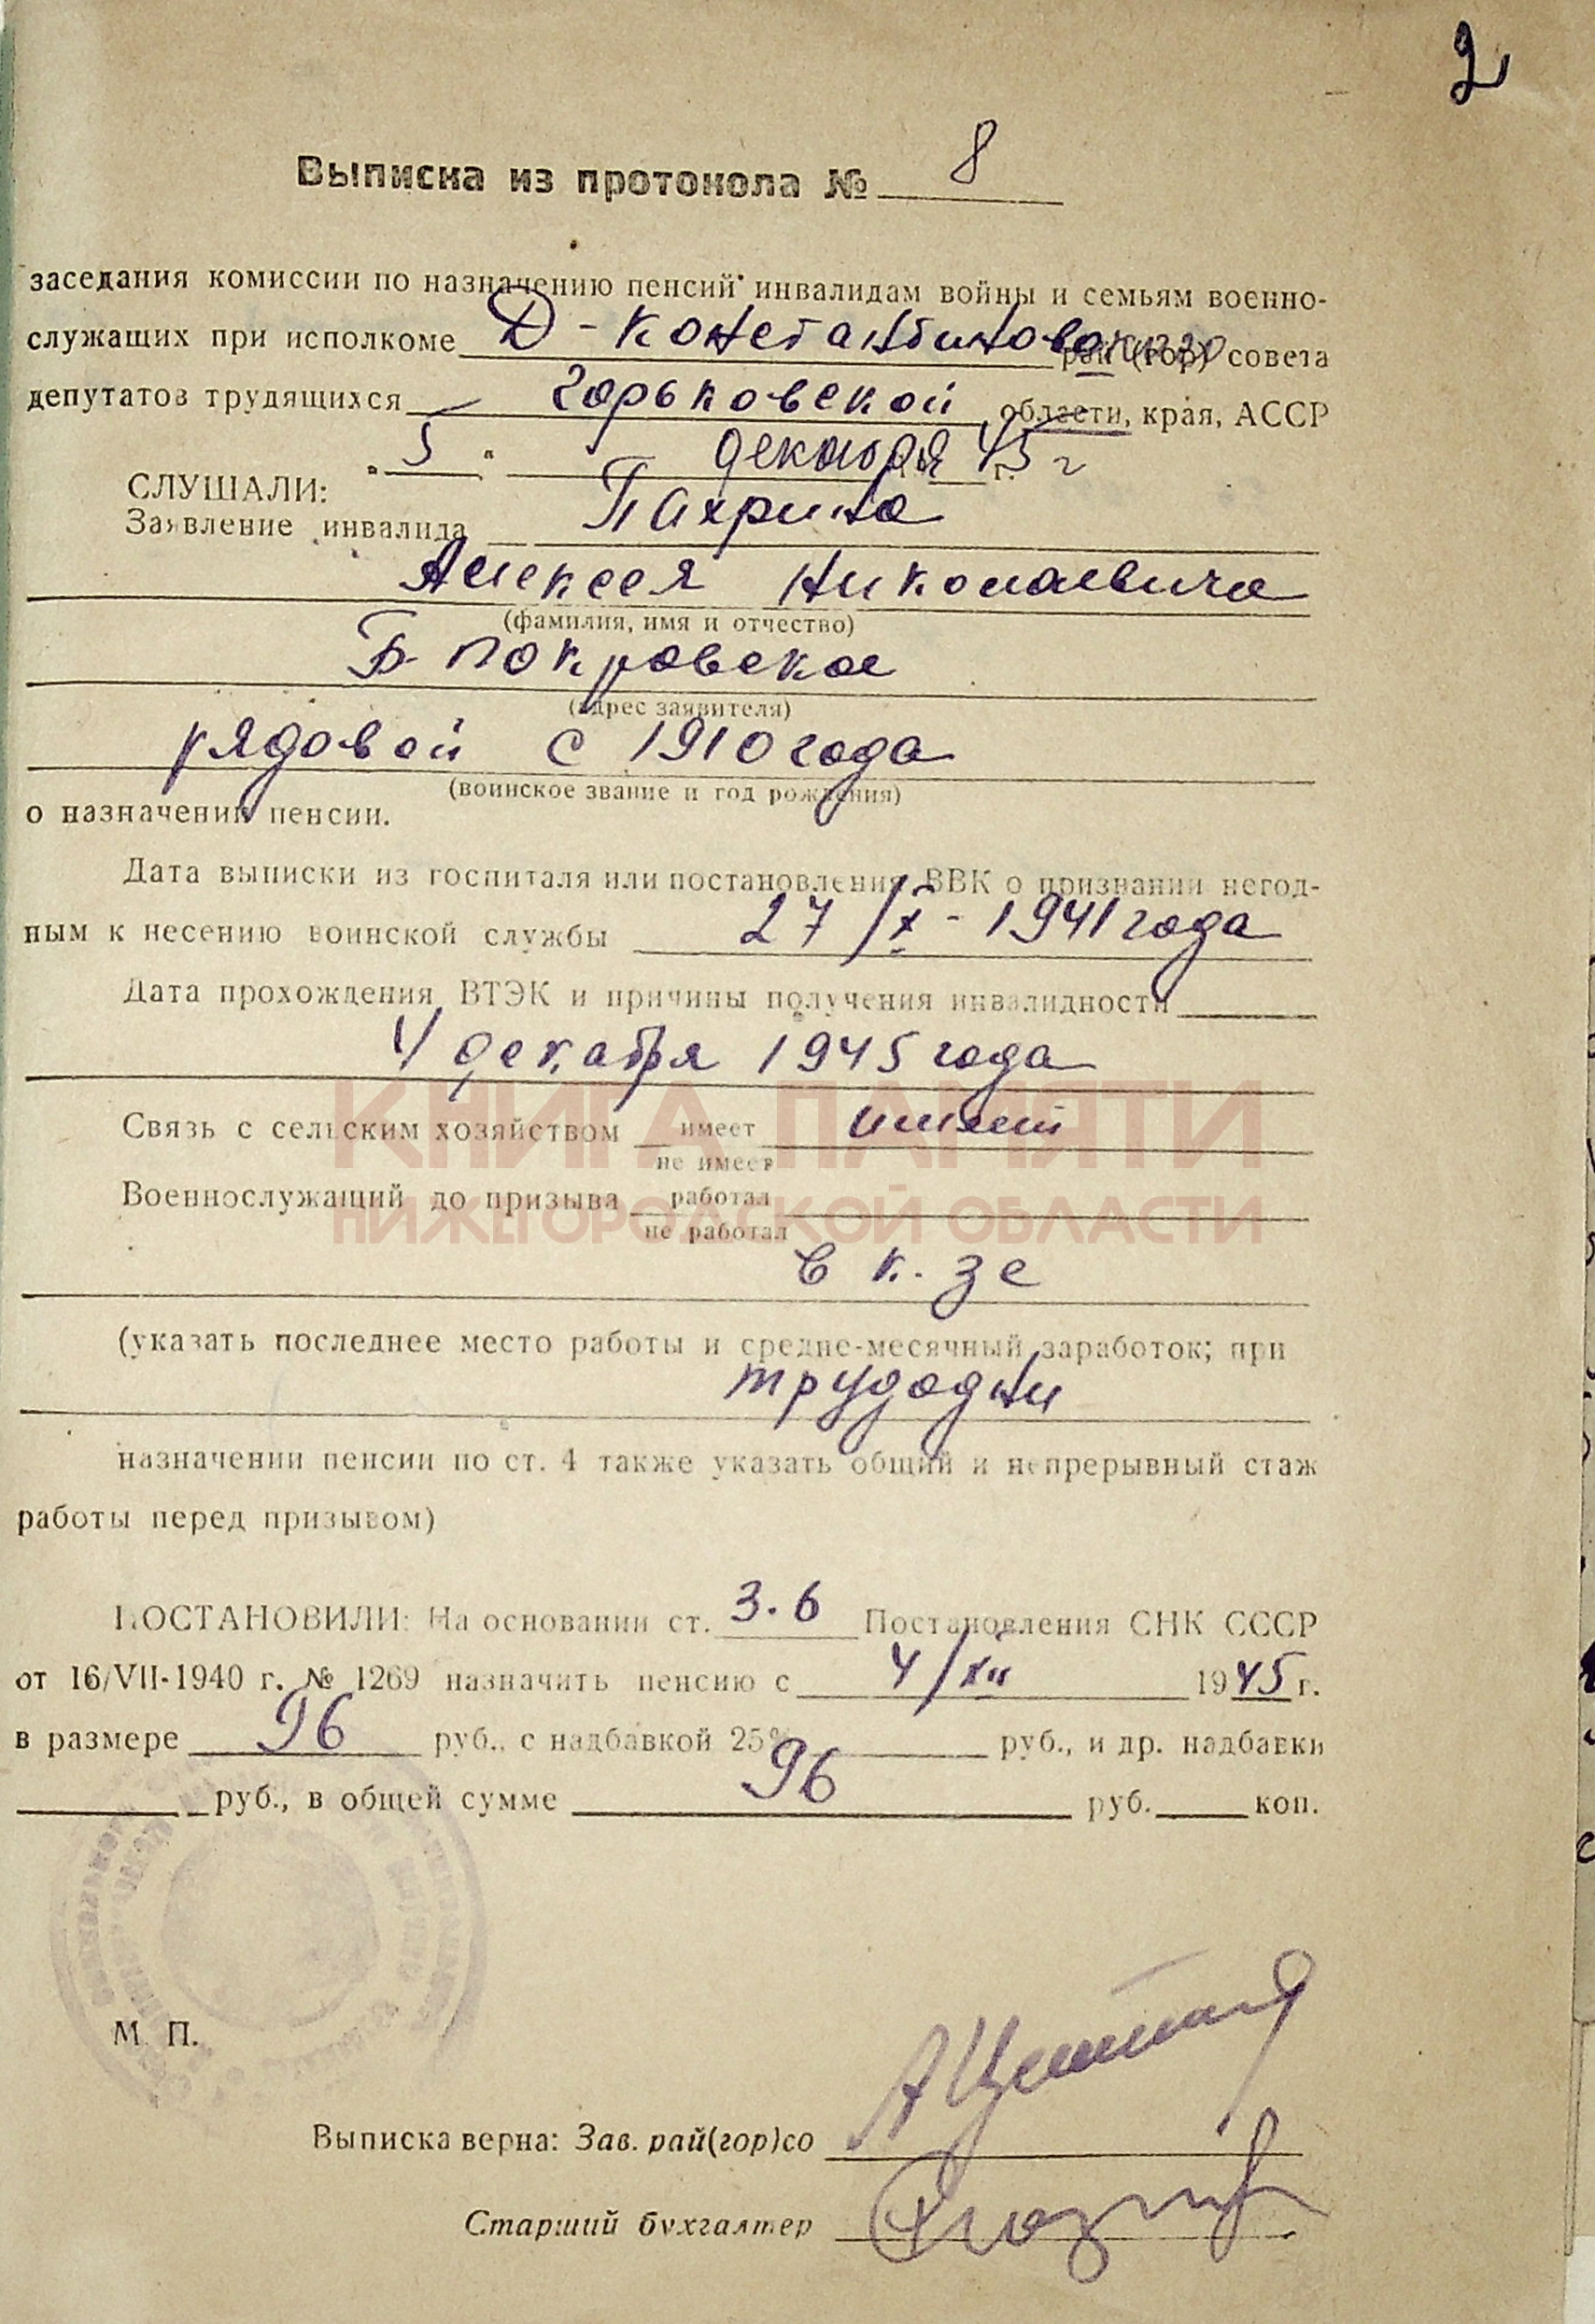 2
Выписка из протокола № 8
заседания комиссии по назначению пенсий инвалидам войны и семьям военно-
служащих при исполкоме Д-Константиновского рай (гор) совета
депутатов трудящихся Горьковской области, края, АССР
"5" декабря 45 г г.
СЛУШАЛИ:
Заявление инвалида Пахрина
Алексея Николаевича
(фамилия, имя и отчество)
Б-Покровское
(адрес заявителя)
рядовой с 1910 года
(воинское звание и год рождения)
о назначении пенсии.
Дата выписки из госпиталя или постановления ВВК о признании негод-
ным к несению воинской службы 27/X-1941 года
Дата прохождения ВТЭК и причины получения инвалидности
4 декабря 1945 года
КНИГА ПАМЯТИ
Связь с сельским хозяйством имеет имеет
не имеет
Военнослужащий до призыва работал
НИЖЕГОРОДСКОЙ ОБЛАСТИ
не работал
в к-зе
(указать последнее место работы и средне-месячный заработок; при
трудодни
назначении пенсии по ст. 4 также указать общий и непрерывный стаж
работы перед призывом)
ПОСТАНОВИЛИ: На основании ст. 3.6 Постановления СНК СССР
от 16/VII-1940 г. № 1269 назначить пенсию с 4/XII 1945 г.
в размере 96 руб., с надбавкой 25% руб., и др. надбавки
руб., в общей сумме 96 руб. коп.
М. П.
Выписка верна: Зав. рай(гор)со
Старший бухгалтер